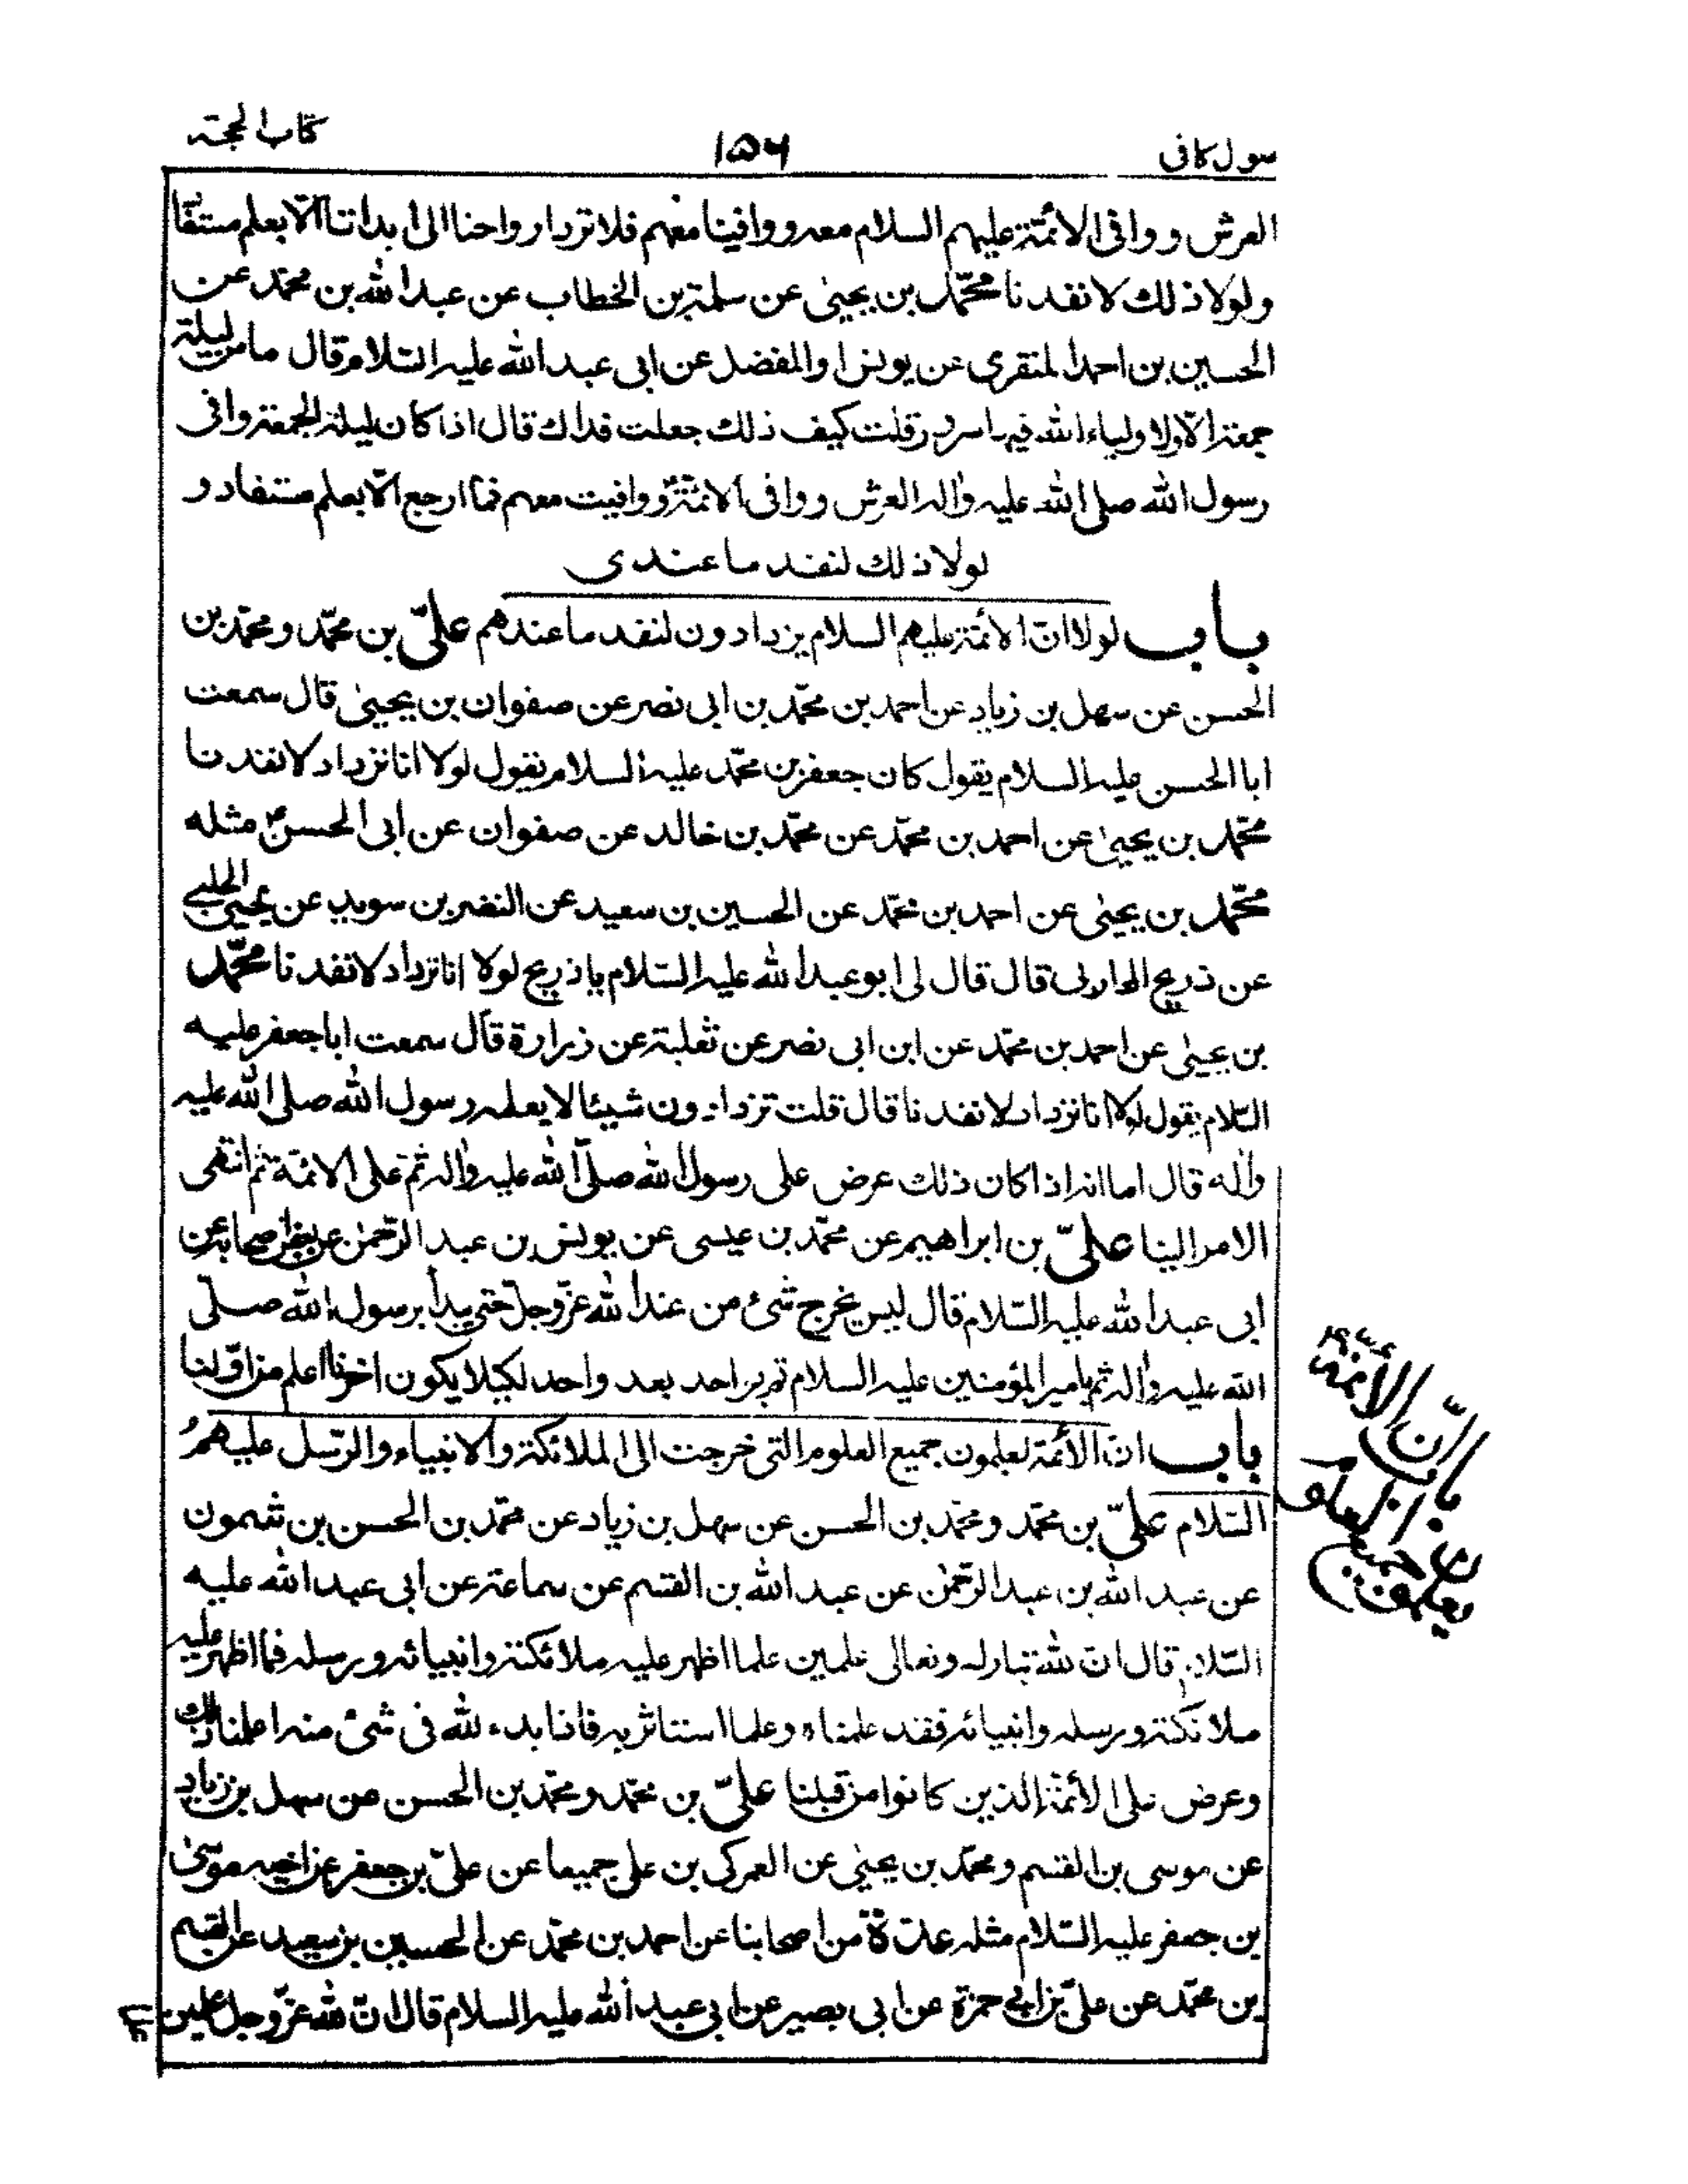 سول كافى
١٥٦
كتاب الحجة
العرش ووافى الائمّة عليهم السلام معه ووافينا معهم فلا ترد ارواحنا الى ابداننا الّا بعلم مستفاد
ولولا ذلك لانفدنا محمّد بن يحيىٰ عن سلمة بن الخطاب عن عبد الله بن محمّد عن
الحسين بن احمد المنقرى عن يونس او المفضل عن ابى عبد الله عليه السّلام قال ما من ليلة
جمعة الّا ولاولياء الله فيها سرور قلت كيف ذلك جعلت فداك قال اذا كان ليلة الجمعة وافى
رسول الله صلى الله عليه واٰله العرش ووافى الائمّة ووافيت معهم فما ارجع الّا بعلم مستفاد و
لولا ذلك لنفد ما عندى
باب لولا انّ الائمّة عليهم السلام يزدادون لنفد ما عندهم علىّ بن محمّد ومحمّد بن
الحسن عن سهل بن زياد عن احمد بن محمّد بن ابى نصر عن صفوان بن يحيىٰ قال سمعت
ابا الحسن عليه السلام يقول كان جعفر بن محمّد عليه السلام يقول لولا انا نزداد لانفدنا
محمّد بن يحيىٰ عن احمد بن محمّد عن محمّد بن خالد عن صفوان عن ابى الحسن ع مثله
محمّد بن يحيىٰ عن احمد بن محمّد عن الحسين بن سعيد عن النضر بن سويد عن يحيىٰ الحلبى
عن ذريح المحاربى قال قال لى ابو عبد الله عليه السّلام يا ذريح لولا انا نزداد لانفدنا محمّد
بن يحيىٰ عن احمد بن محمّد عن ابن ابى نصر عن ثعلبة عن زرارة قال سمعت ابا جعفر عليه
السّلام يقول لولا انا نزداد لانفدنا قال قلت تزدادون شيئا لا يعلمه رسول الله صلى الله عليه
واٰله قال اما انه اذا كان ذلك عرض على رسول الله صلّى الله عليه واٰله ثمّ على الائمّة ثم انتهى
الامر الينا علىّ بن ابراهيم عن محمّد بن عيسى عن يونس بن عبد الرّحمٰن عن بعض اصحابه عن
ابى عبد الله عليه السّلام قال ليس يخرج شئ من عند الله عزّ وجلّ حتى يبدأ برسول الله صلّى
الله عليه واٰله ثم بامير المؤمنين عليه السلام ثم بواحد بعد واحد لكيلا يكون اخرنا اعلم من اوّلنا
باب انّ الأئمّة يعلمون جميع العلوم التى خرجت الى الملائكة والانبياء والرّسل عليهم
السّلام علىّ بن محمّد ومحمّد بن الحسن عن سهل بن زياد عن محمّد بن الحسن بن شمون
عن عبد الله بن عبد الرّحمٰن عن عبد الله بن القسم عن سماعة عن ابى عبد الله عليه
السّلام قال ان لله تبارك وتعالى علمين علما اظهر عليه ملائكته وانبيائه ورسله فما اظهر عليه
ملائكته ورسله وانبيائه فقد علمناه وعلما استاثر به فاذا بدء لله فى شئ منه اعلمنا ذلك
وعرض على الأئمّة الذين كانوا من قبلنا علىّ بن محمّد ومحمّد بن الحسن عن سهل بن زياد
عن موسى بن القسم ومحمّد بن يحيىٰ عن العمركى بن على جميعا عن علىّ بن جعفر عن اخيه موسىٰ
بن جعفر عليه السّلام مثله عدّة من اصحابنا عن احمد بن محمّد عن الحسين بن سعيد عن القسم
بن محمّد عن علىّ بن ابى حمزة عن ابى بصير عن ابى عبد الله عليه السلام قال انّ لله عزّ وجلّ علمين
باب انّ الأئمّة ع
يعلمون جميع العلوم